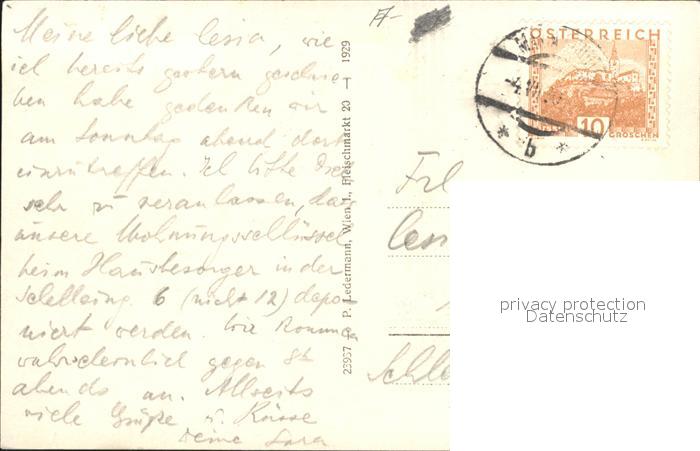 Meine liebe Lesia, wie
ich bereits gestern geschrie
ben habe gedenken wir
am Sonntag abend dort
einzutreffen. Ich bitte Dich
sehr zu veranlassen, dass
unsere Wohnungsschlüssel
beim Hausbesorger in der
Schelleing. 6 (nicht 12) depo-
niert werden. Wir kommen
wahrscheinlich gegen 8h
abends an. Allseits
viele Grüße u. Küsse
Deine Lora
23957 C. P. Ledermann, Wien I., Fleischmarkt 20 — T 1929
ÖSTERREICH
10
GROSCHEN
* b *
Frl
privacy protection
Datenschutz